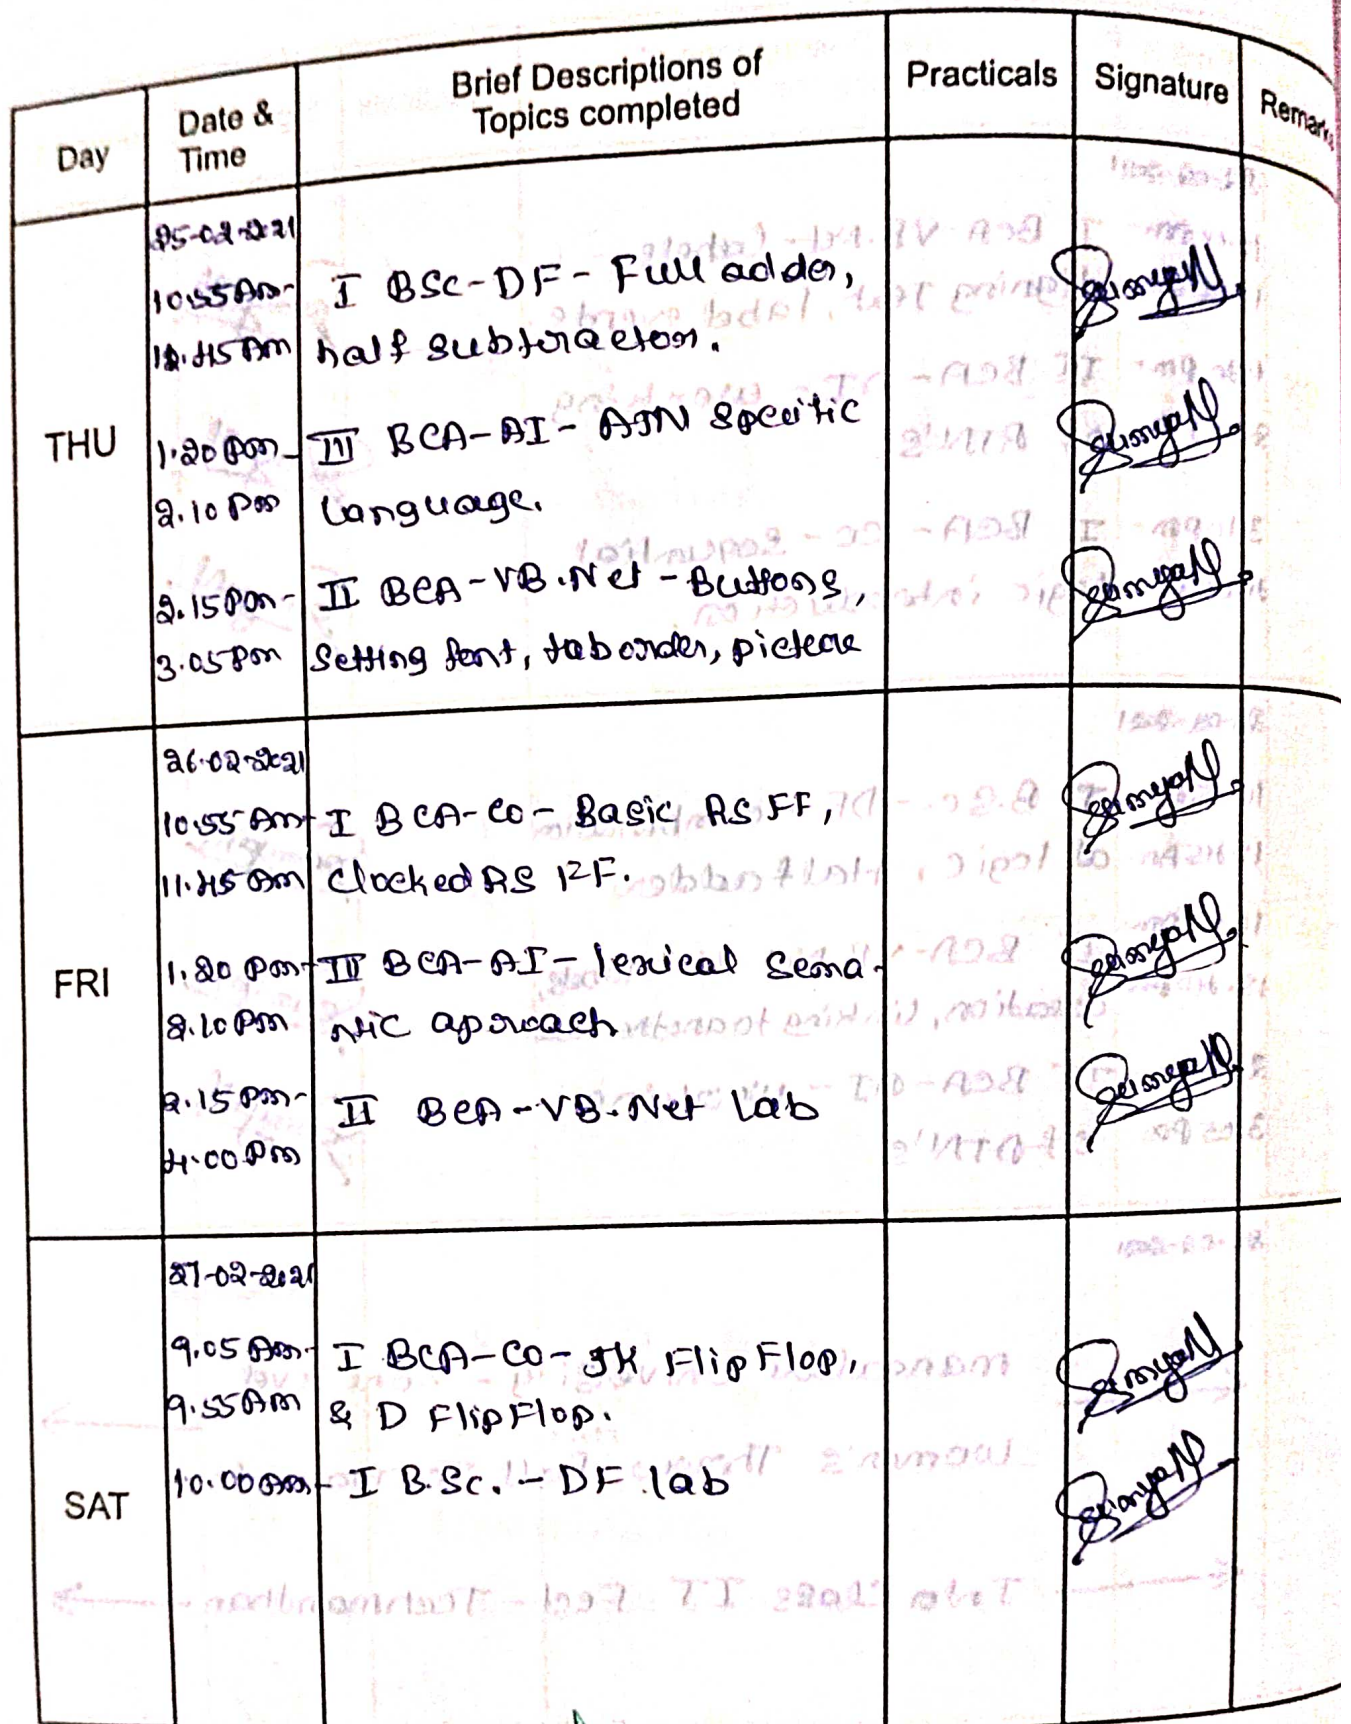 Day
Date & Time
Brief Descriptions of
Topics completed
Practicals
Signature
Remarks
THU
25-02-2021
10.55 Am-
I BSc-DF- Full adder,
12.45 Am
half subtractor.
1.20 Pm-
III BCA-AI- ATN Specific
2.10 Pm
Language.
2.15 Pm-
II BCA-VB.Net-Buttons,
3.05 Pm
Setting font, tab order, picture
FRI
26-02-2021
10.55 Am-
I BCA-CO- Basic RS FF,
11.45 Am
Clocked RS FF.
1.20 Pm-
III BCA-AI- lexical Sema-
2.10 Pm
ntic aproach
2.15 Pm-
II BCA-VB.Net Lab
4.00 Pm
SAT
27-02-2021
9.05 Am-
I BCA-CO- JK Flip Flop,
9.55 Am
& D Flip Flop.
10.00 Am-
I B.Sc. - DF lab